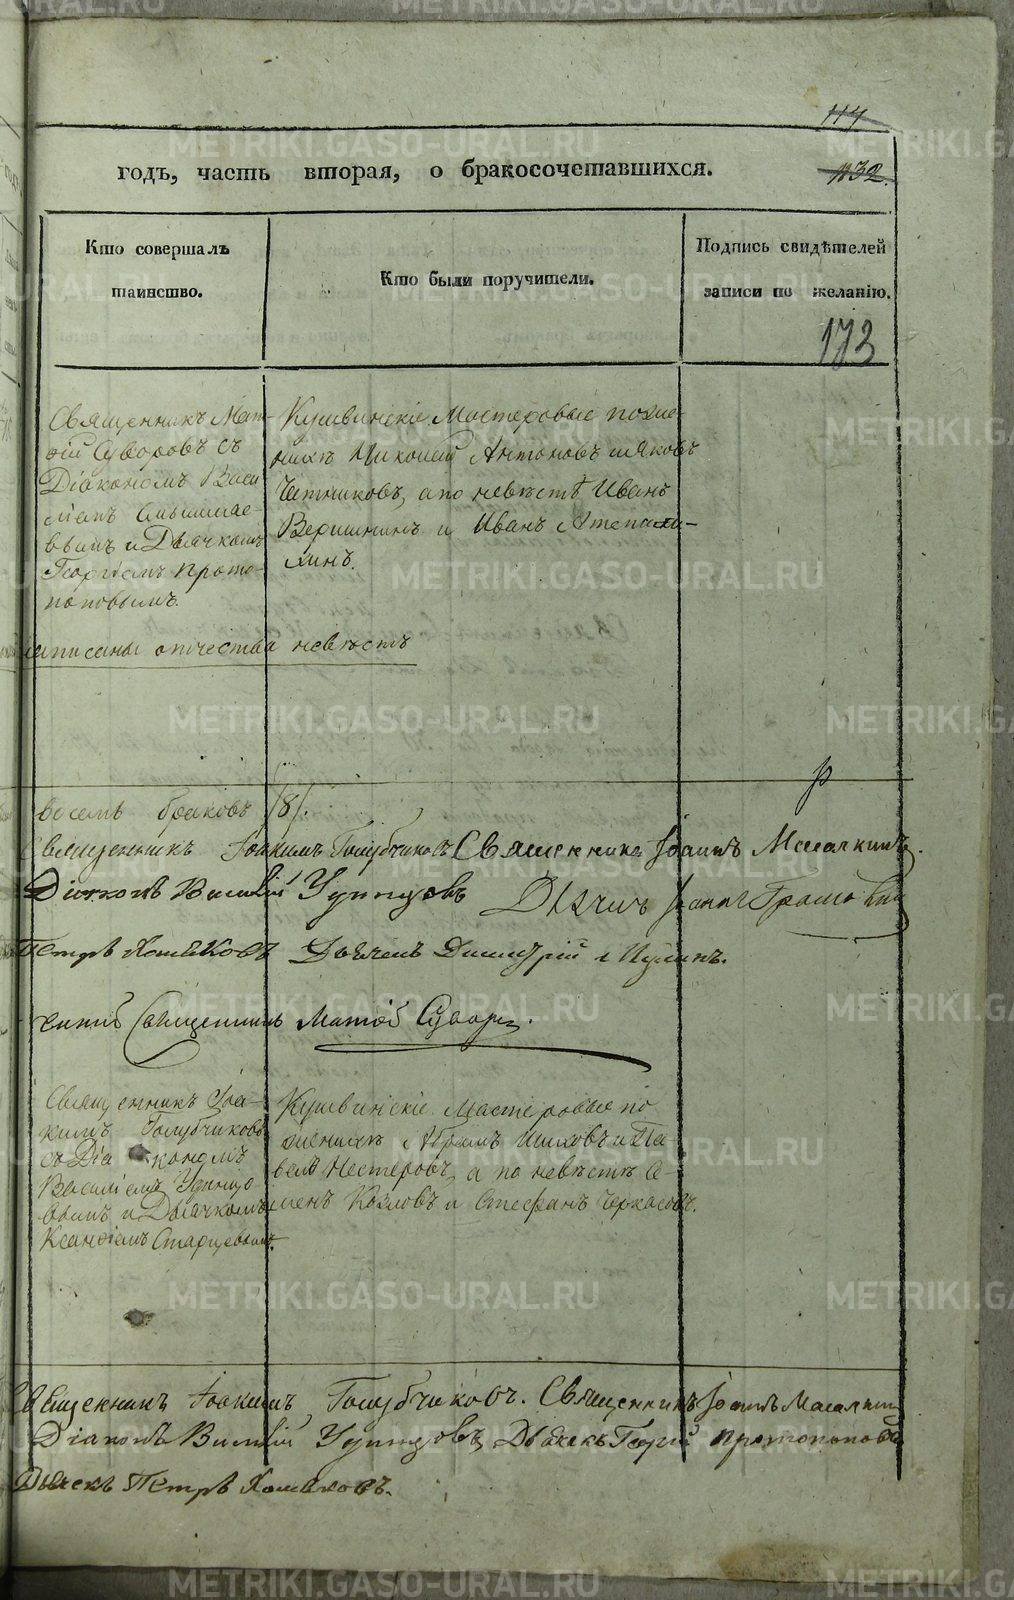 114
годъ, часть вторая, о бракосочетавшихся.
1132.
Кто совершалъ таинство.
Кто были поручители.
Подпись свидѣтелей записи по желанію.
173
Священникъ Мат-
ѳій Суворовъ съ
Діакономъ Васи
ліемъ
вымъ и Дьячкомъ
Георгіемъ Прото-
поповымъ.
Кушвинскіе Мастеровые по же-
нихѣ Николай Антоновъ и Яковъ
а по невѣстѣ Иванъ
Вершининъ и Иванъ
хинъ.
записаны отчества невѣстъ
восемь браковъ /8/.
Священникъ Іоакимъ Голубчиковъ Священникъ Іоаннъ
Діаконъ Василій Удинцовъ Дьячекъ Іоаннъ
Петръ Хомяковъ Дьячекъ Димитрій
Священникъ Матѳій Суворовъ.
Священникъ Іоа-
кимъ Голубчиковъ
съ Діакономъ
Василіемъ Удинцо
вымъ и Дьячкомъ
Старцевымъ.
Кушвинскіе Мастеровые по
женихѣ Абрамъ и Па-
велъ Нестеровъ, а по невѣстѣ Се-
менъ Козловъ и Стефанъ Черкасовъ.
Священникъ Іоакимъ Голубчиковъ. Священникъ Іоаннъ
Діаконъ Василій Удинцовъ Дьячекъ Георгій Протопоповъ
Дьячекъ Петръ Хомяковъ.
METRIKI.GASO-URAL.RU